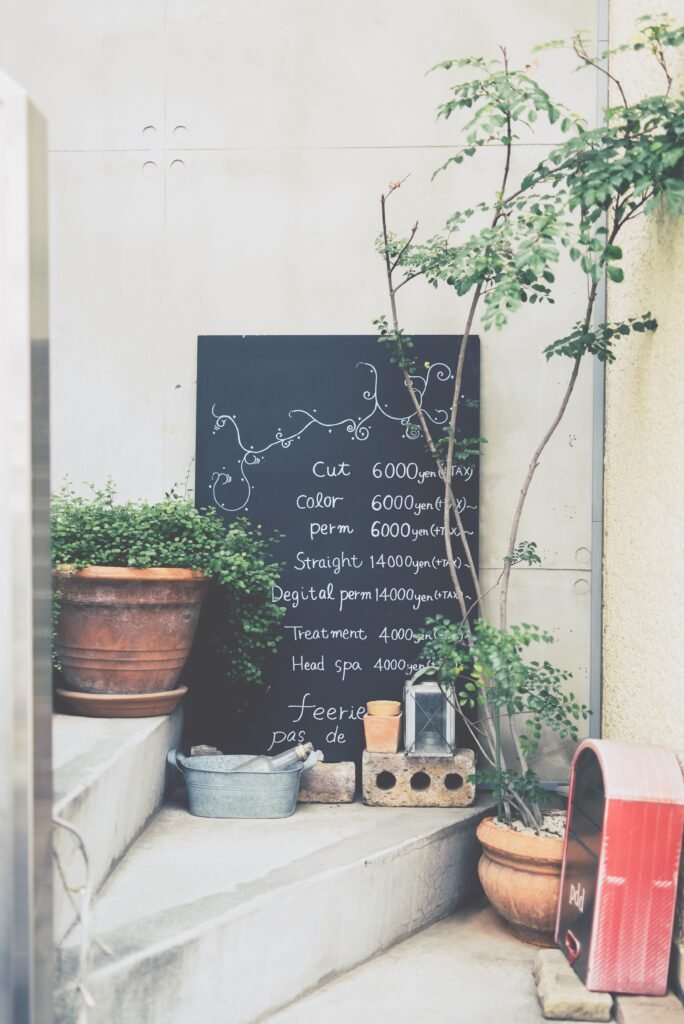 Cut 6000yen(+TAX)
Color 6000yen(+TAX)~
perm 6000yen(+TAX)~
Straight 14000yen(+TAX)~
Degital perm 14000yen(+TAX)~
Treatment 4000yen
Head spa 4000yen
feerie
pas de
pdd